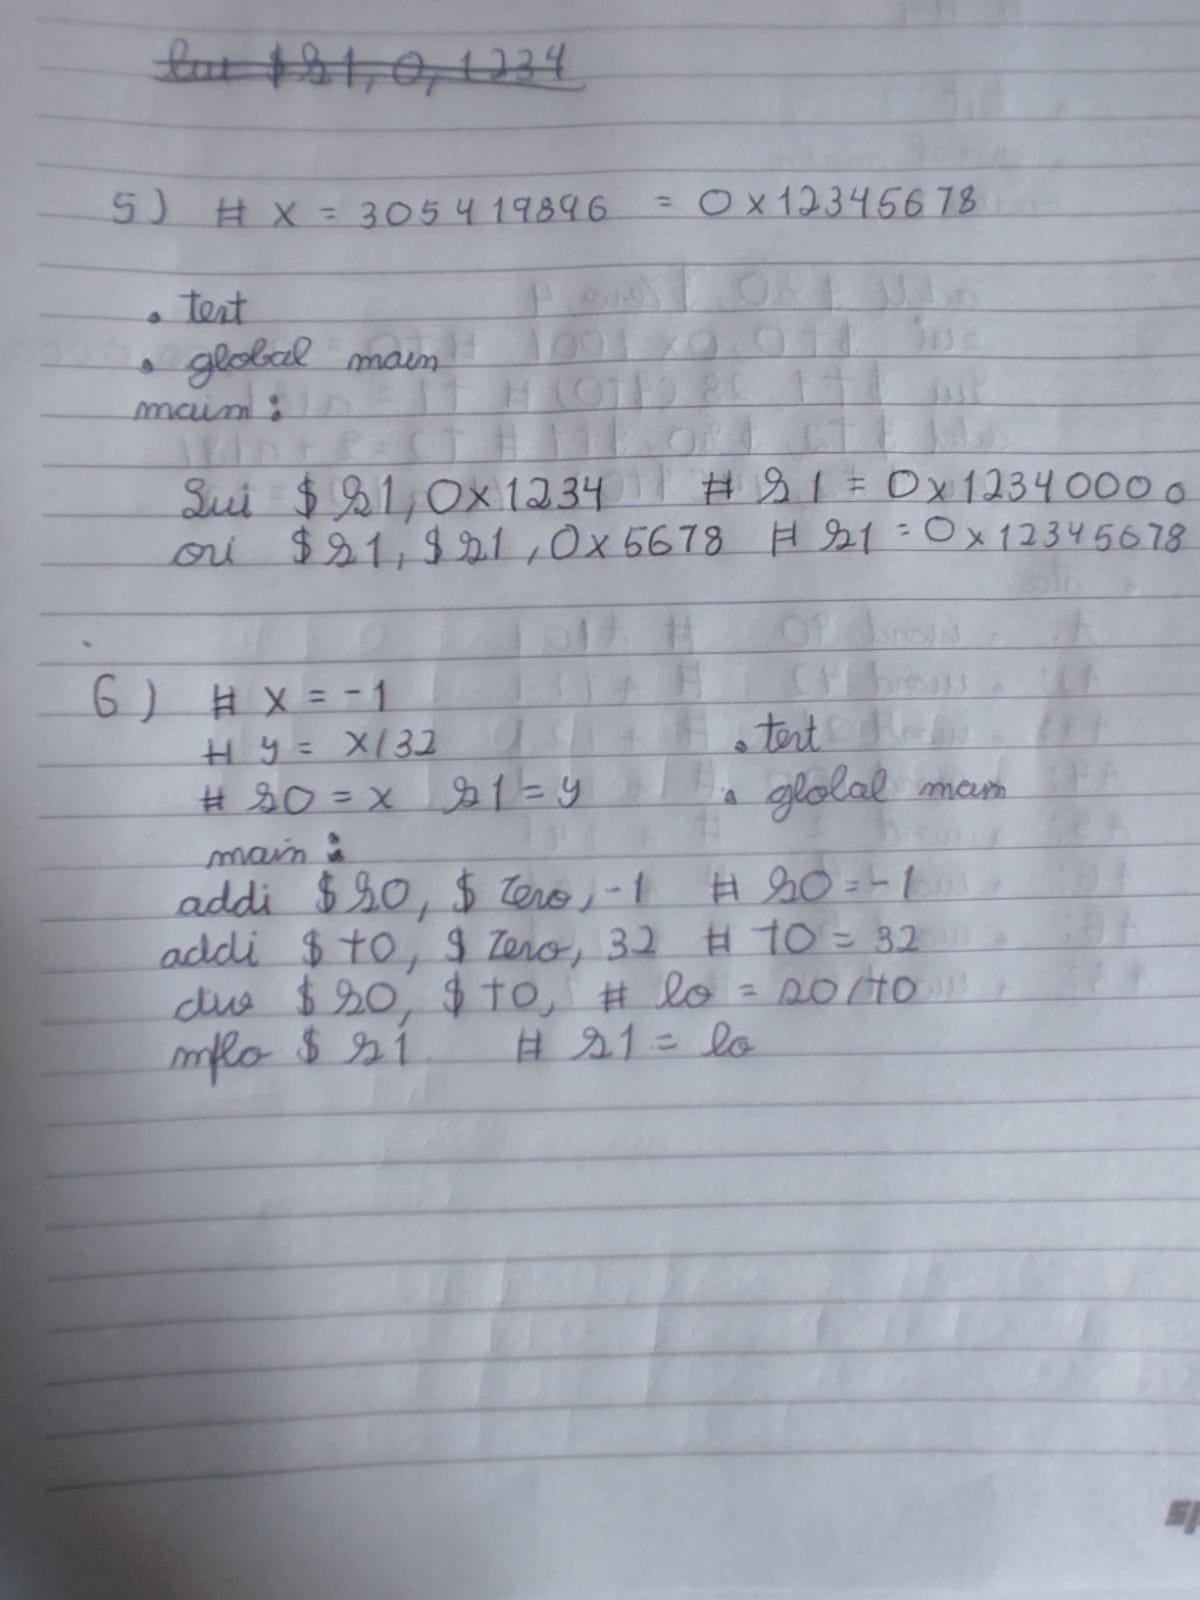 lui $s1, 0, 1234
5) # x = 305419896 = 0x12345678
. text
. global main
main:
lui $s1, 0x1234 # s1 = 0x12340000
ori $s1, $s1, 0x5678 # s1 = 0x12345678
6) # x = -1
# y = x/32 . text
# s0 = x s1 = y . global main
main:
addi $s0, $zero, -1 # s0 = -1
addi $t0, $zero, 32 # t0 = 32
div $s0, $t0, # lo = s0/t0
mflo $s1 # s1 = lo